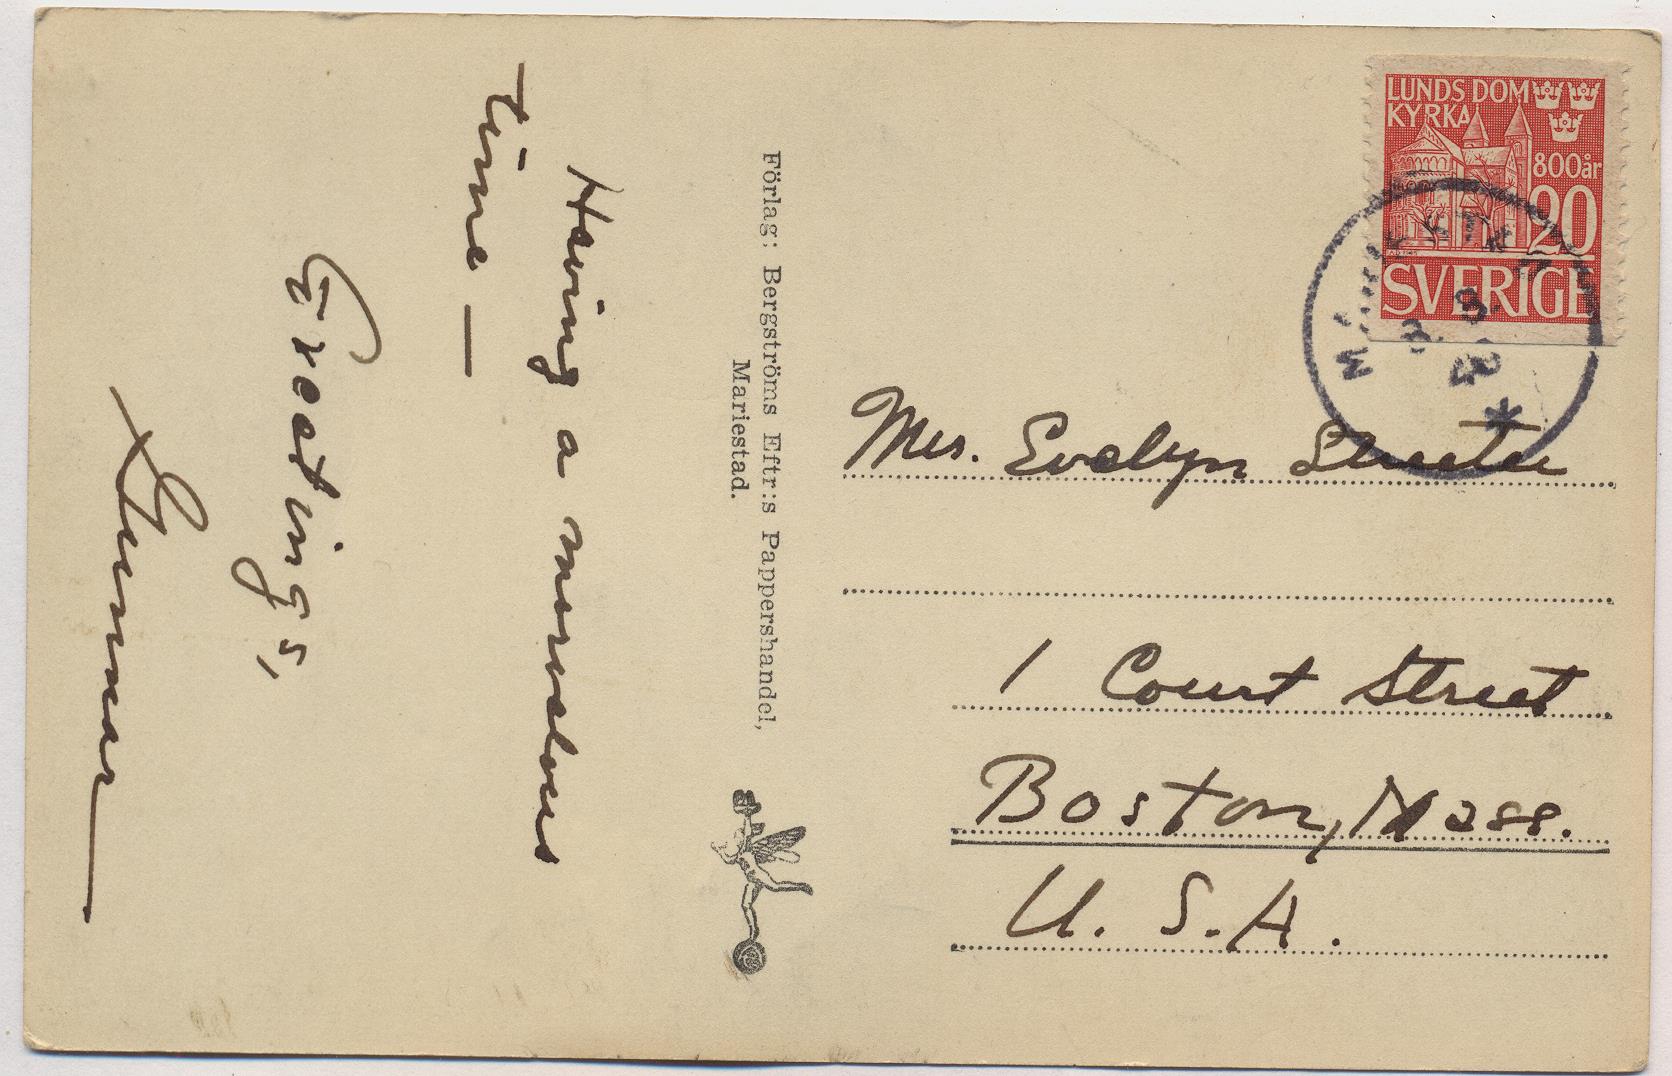 Having a marvelous
time —
Greetings,
Gunnar
Förlag: Bergströms Eftr:s Pappershandel,
Mariestad.
LUNDS DOM
KYRKA
800år
20
SVERIGE
Mrs. Evelyn Streeter
1 Court Street
Boston, Mass.
U.S.A.